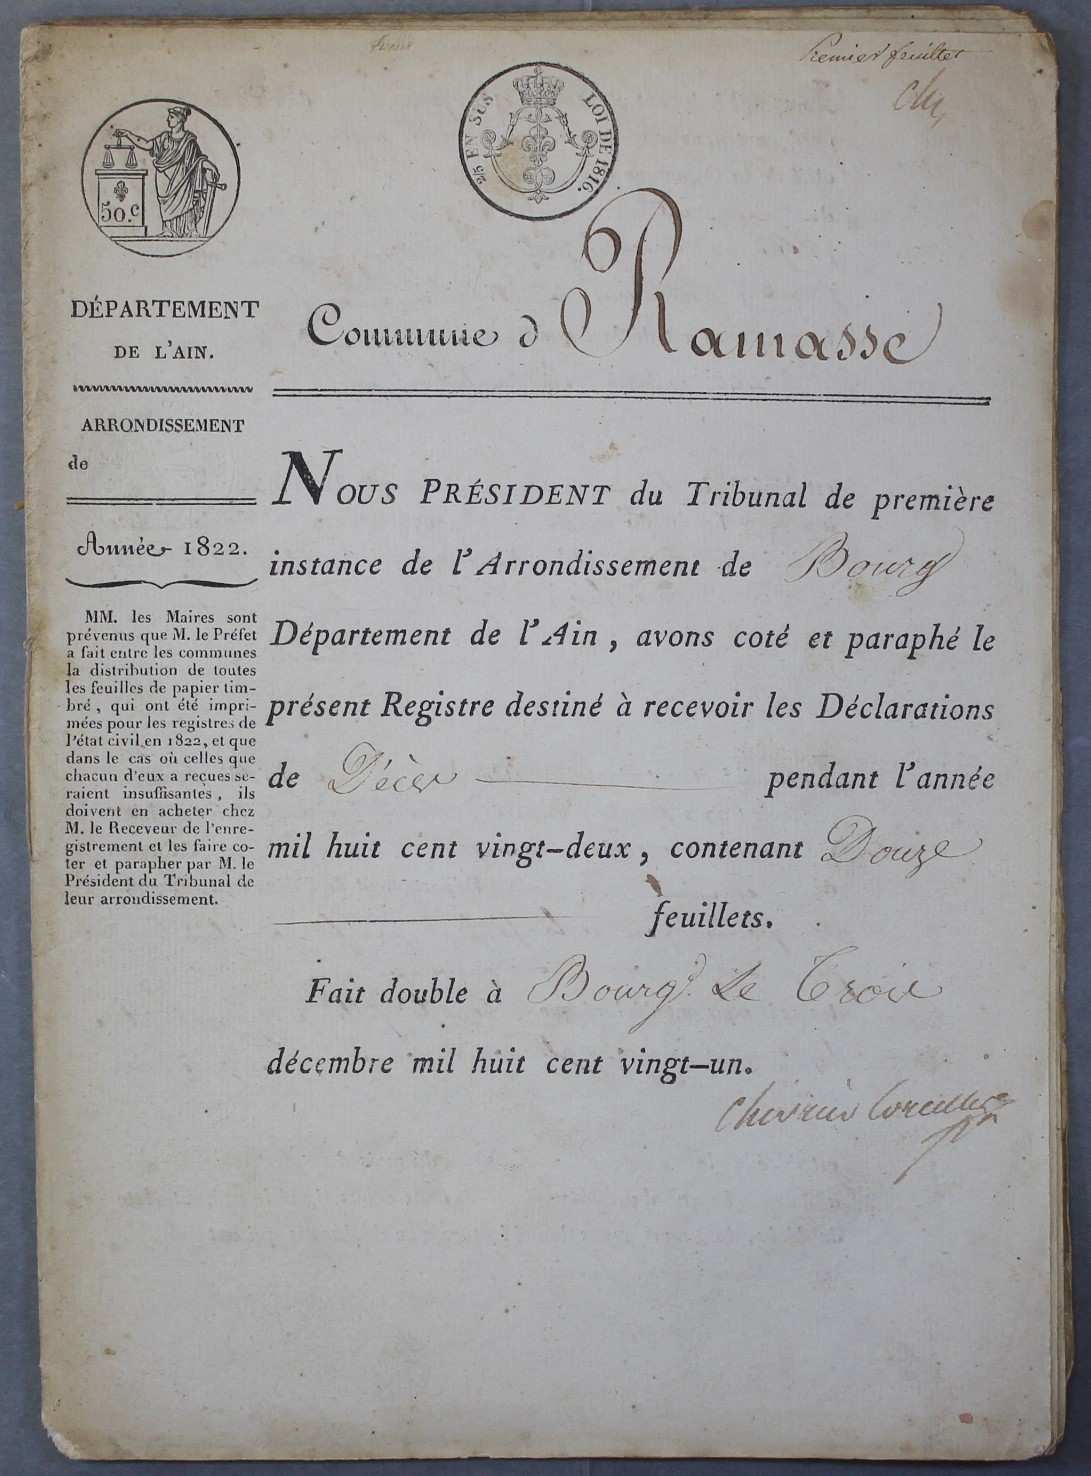 Premier feuillet
2/5 EN SUS
LOI DE 1816.
50.c
DÉPARTEMENT
DE L'AIN.
ARRONDISSEMENT
de
Année 1822.
MM. les Maires sont
prévenus que M. le Préfet
a fait entre les communes
la distribution de toutes
les feuilles de papier tim-
bré, qui ont été impri-
mées pour les registres de
l'état civil en 1822, et que
dans le cas où celles que
chacun d'eux a reçues se-
raient insuffisantes, ils
doivent en acheter chez
M. le Receveur de l'enre-
gistrement et les faire co-
ter et parapher par M. le
Président du Tribunal de
leur arrondissement.
Commune d Ramasse
NOUS PRÉSIDENT du Tribunal de première
instance de l'Arrondissement de Bourg
Département de l'Ain, avons coté et paraphé le
présent Registre destiné à recevoir les Déclarations
de Décès pendant l'année
mil huit cent vingt-deux, contenant Douze
feuillets.
Fait double à Bourg Le Trois
décembre mil huit cent vingt-un.